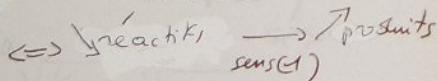 <=> ↘réactifs ⟶ ↗produits
sens(1)